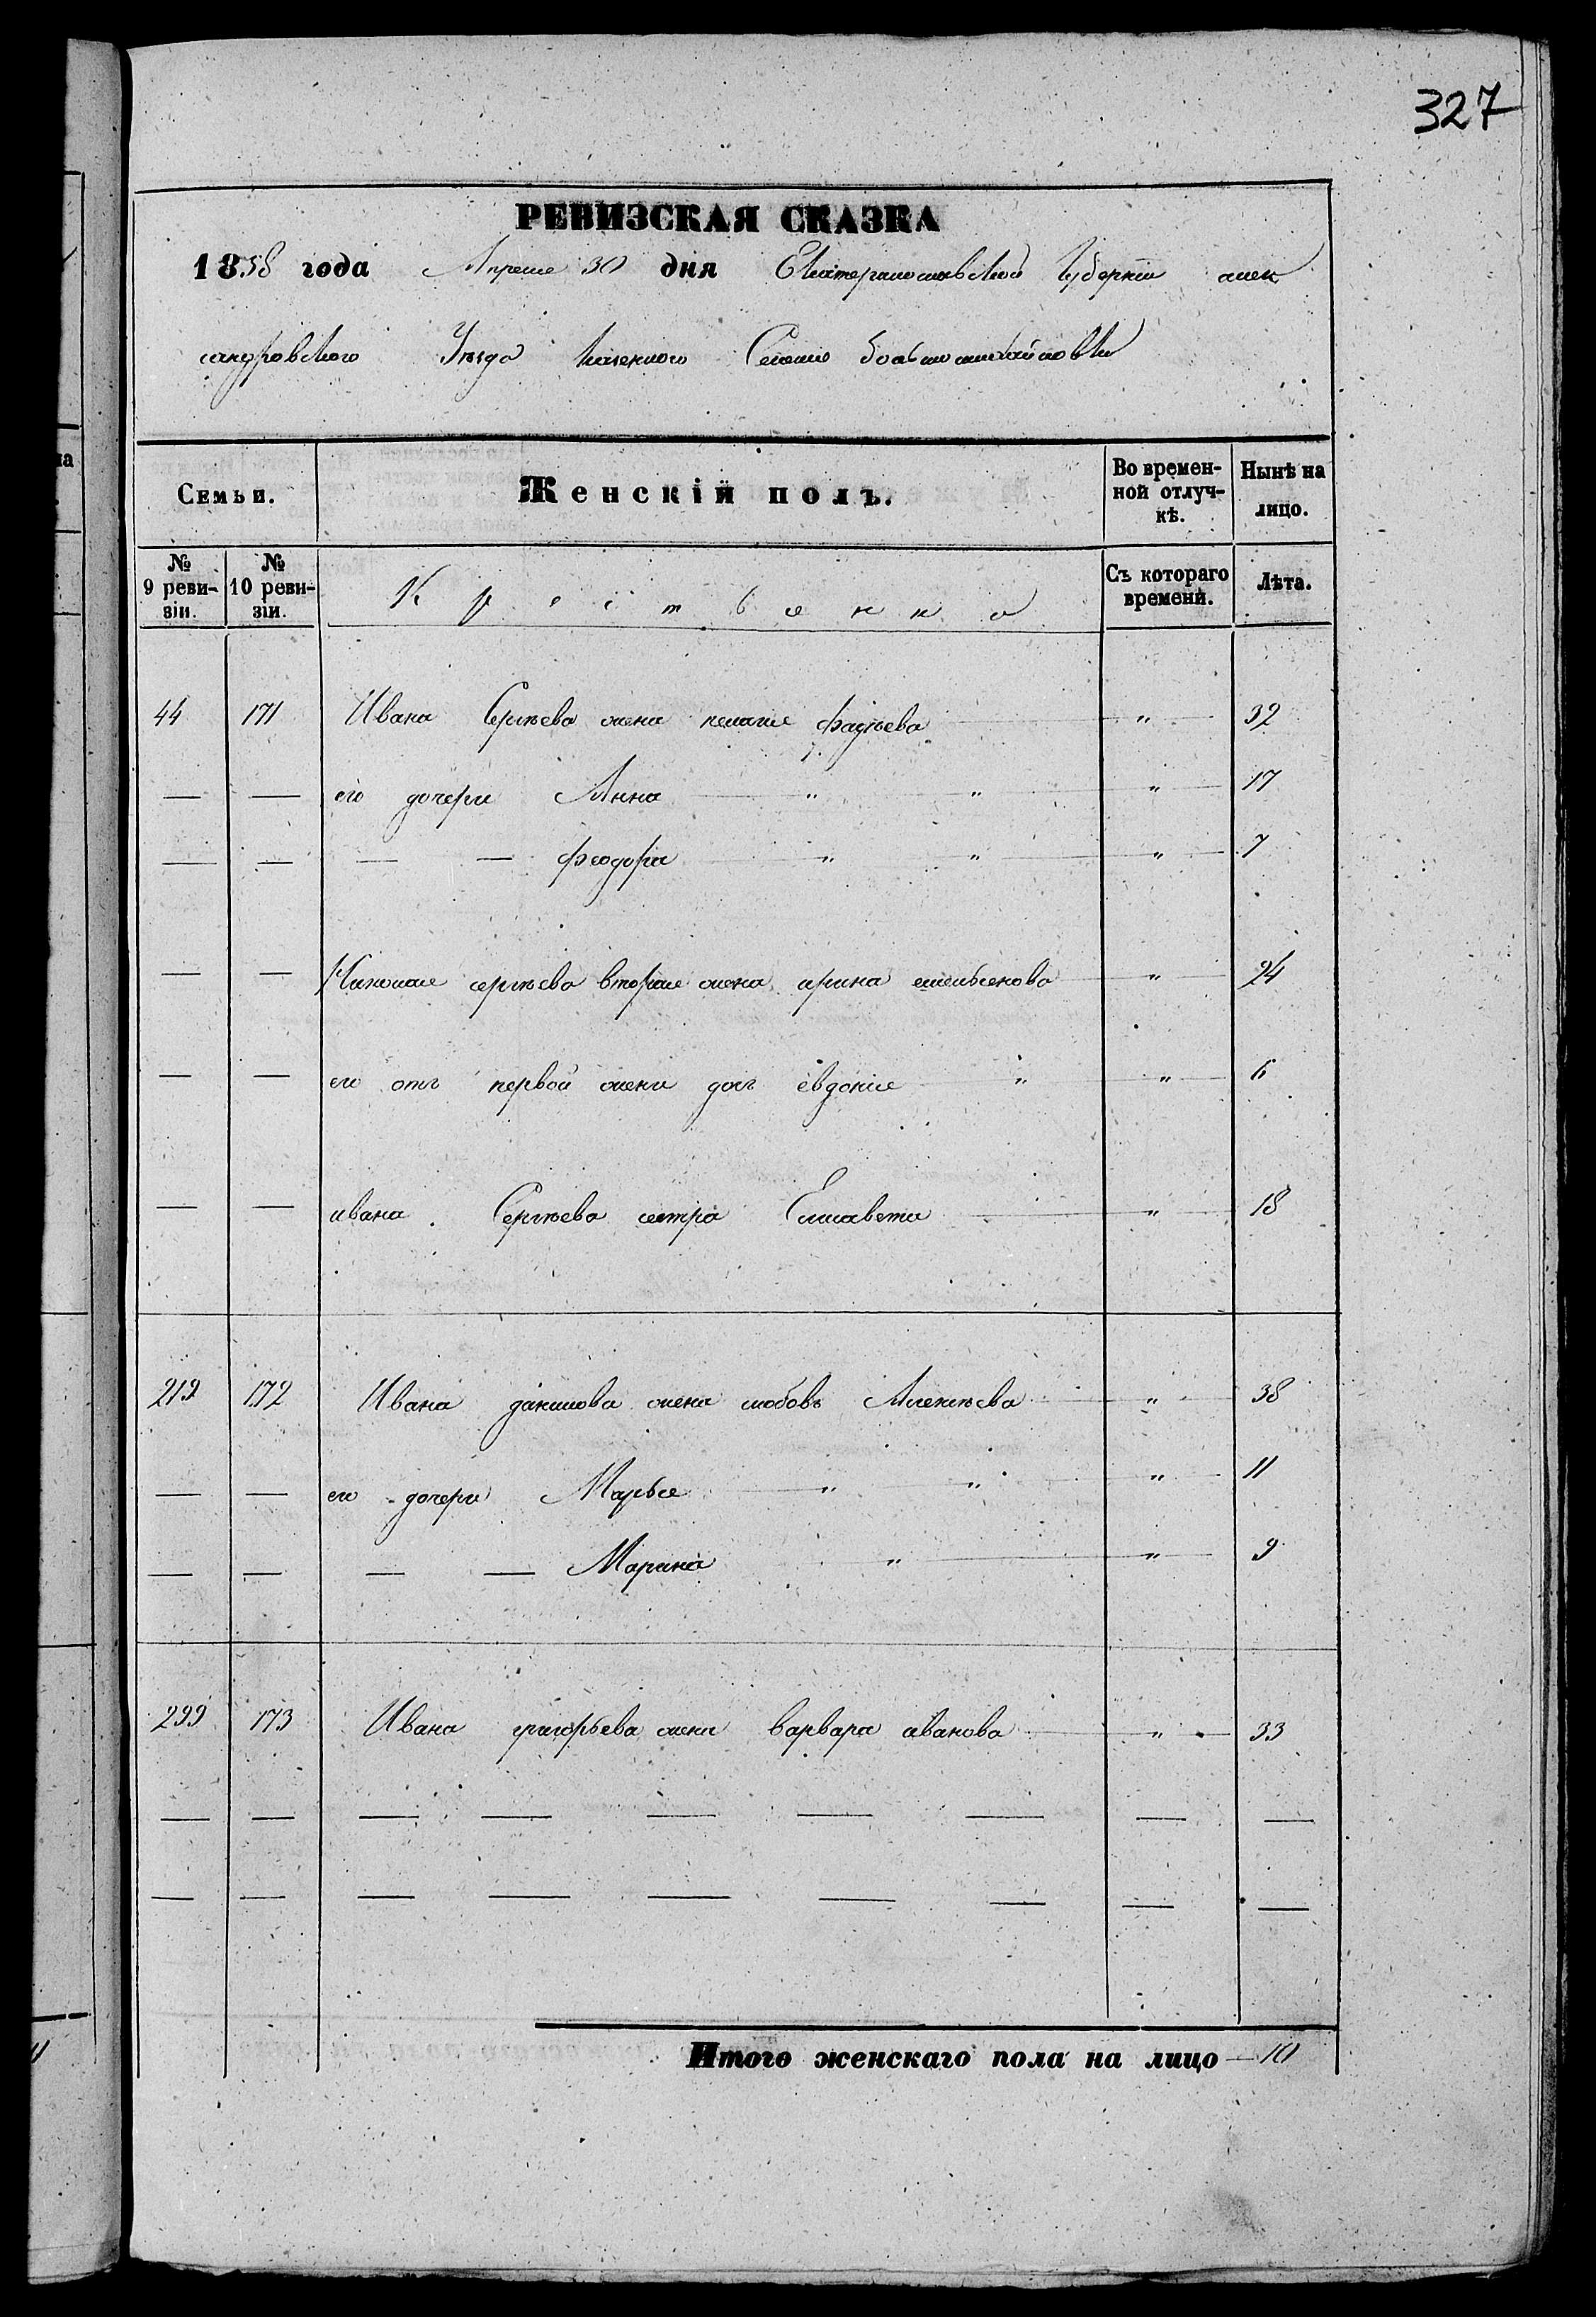 327
РЕВИЗСКАЯ СКАЗКА
1858 года Апреля 30 дня Екатеринославской Губернiи алек
сандровского Уезда Казенного Селения большомихайловки
Семьи. Женскiй полъ. Во времен-ной отлуч-кѣ. Нынѣ на лицо.
№ 9 реви-зiи. № 10 реви-зiи. Съ котораго времени. Лѣта.
44 171 Ивана Сергѣева жена пелагия фадѣева " 32
— — его дочери Анна " " " 17
— — — — феодора " " " 7
— — Николая сергѣева вторая жена ирина емельенова " 24
— — его отъ первой жени дочь евдокiя " " 6
— — ивана Сергѣева сестра Елисавета " 18
212 172 Ивана данилова жена любовь Алексѣева " 38
— — его дочери Марья " " " 11
— — — — Марина " " 9
299 173 Ивана григорьева жена варвара иванова " 33
— — — — — — — — —
— — — — — — — — —
Итого женскаго пола на лицо — 10